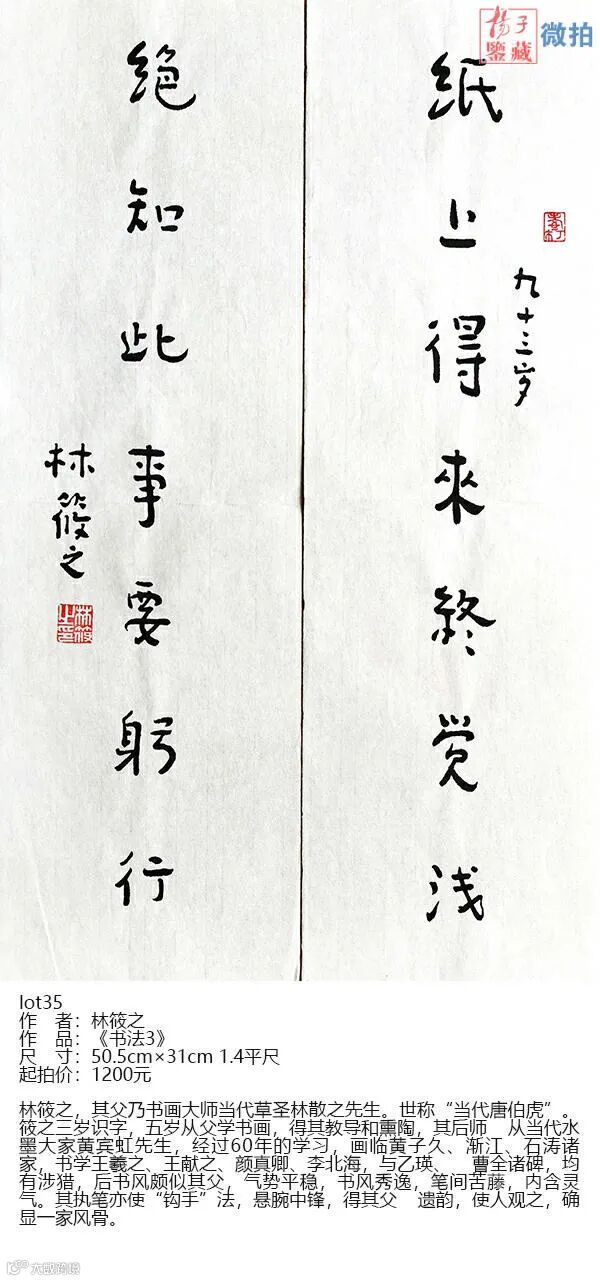 揚子
鑒藏
微拍
紙上得來終觉浅
九十三岁
絕知此事要躬行
林筱之
林筱之印
lot35
作 者：林筱之
作 品：《书法3》
尺 寸：50.5cm×31cm 1.4平尺
起拍价：1200元
林筱之，其父乃书画大师当代草圣林散之先生。世称“当代唐伯虎”。
筱之三岁识字，五岁从父学书画，得其教导和熏陶，其后师 从当代水
墨大家黄宾虹先生，经过60年的学习，画临黄子久、渐江、石涛诸
家，书学王羲之、王献之、颜真卿、李北海，与乙瑛、 曹全诸碑，均
有涉猎，后书风颇似其父，气势平稳，书风秀逸，笔间苦藤，内含灵
气。其执笔亦使“钩手”法，悬腕中锋，得其父 遗韵，使人观之，确
显一家风骨。